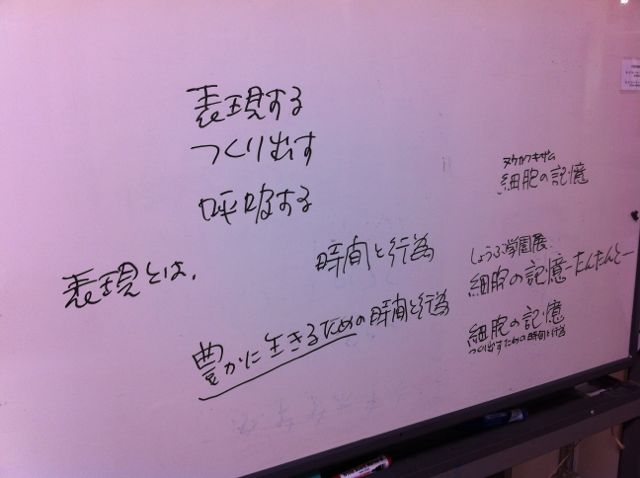 表現する
つくり出す
呼吸する
表現とは、
時間と行為
豊かに生きるための時間と行為
細胞の記憶
しょうぶ学園展
細胞の記憶ーたんたんとー
細胞の記憶
つくり出すための時間と行為